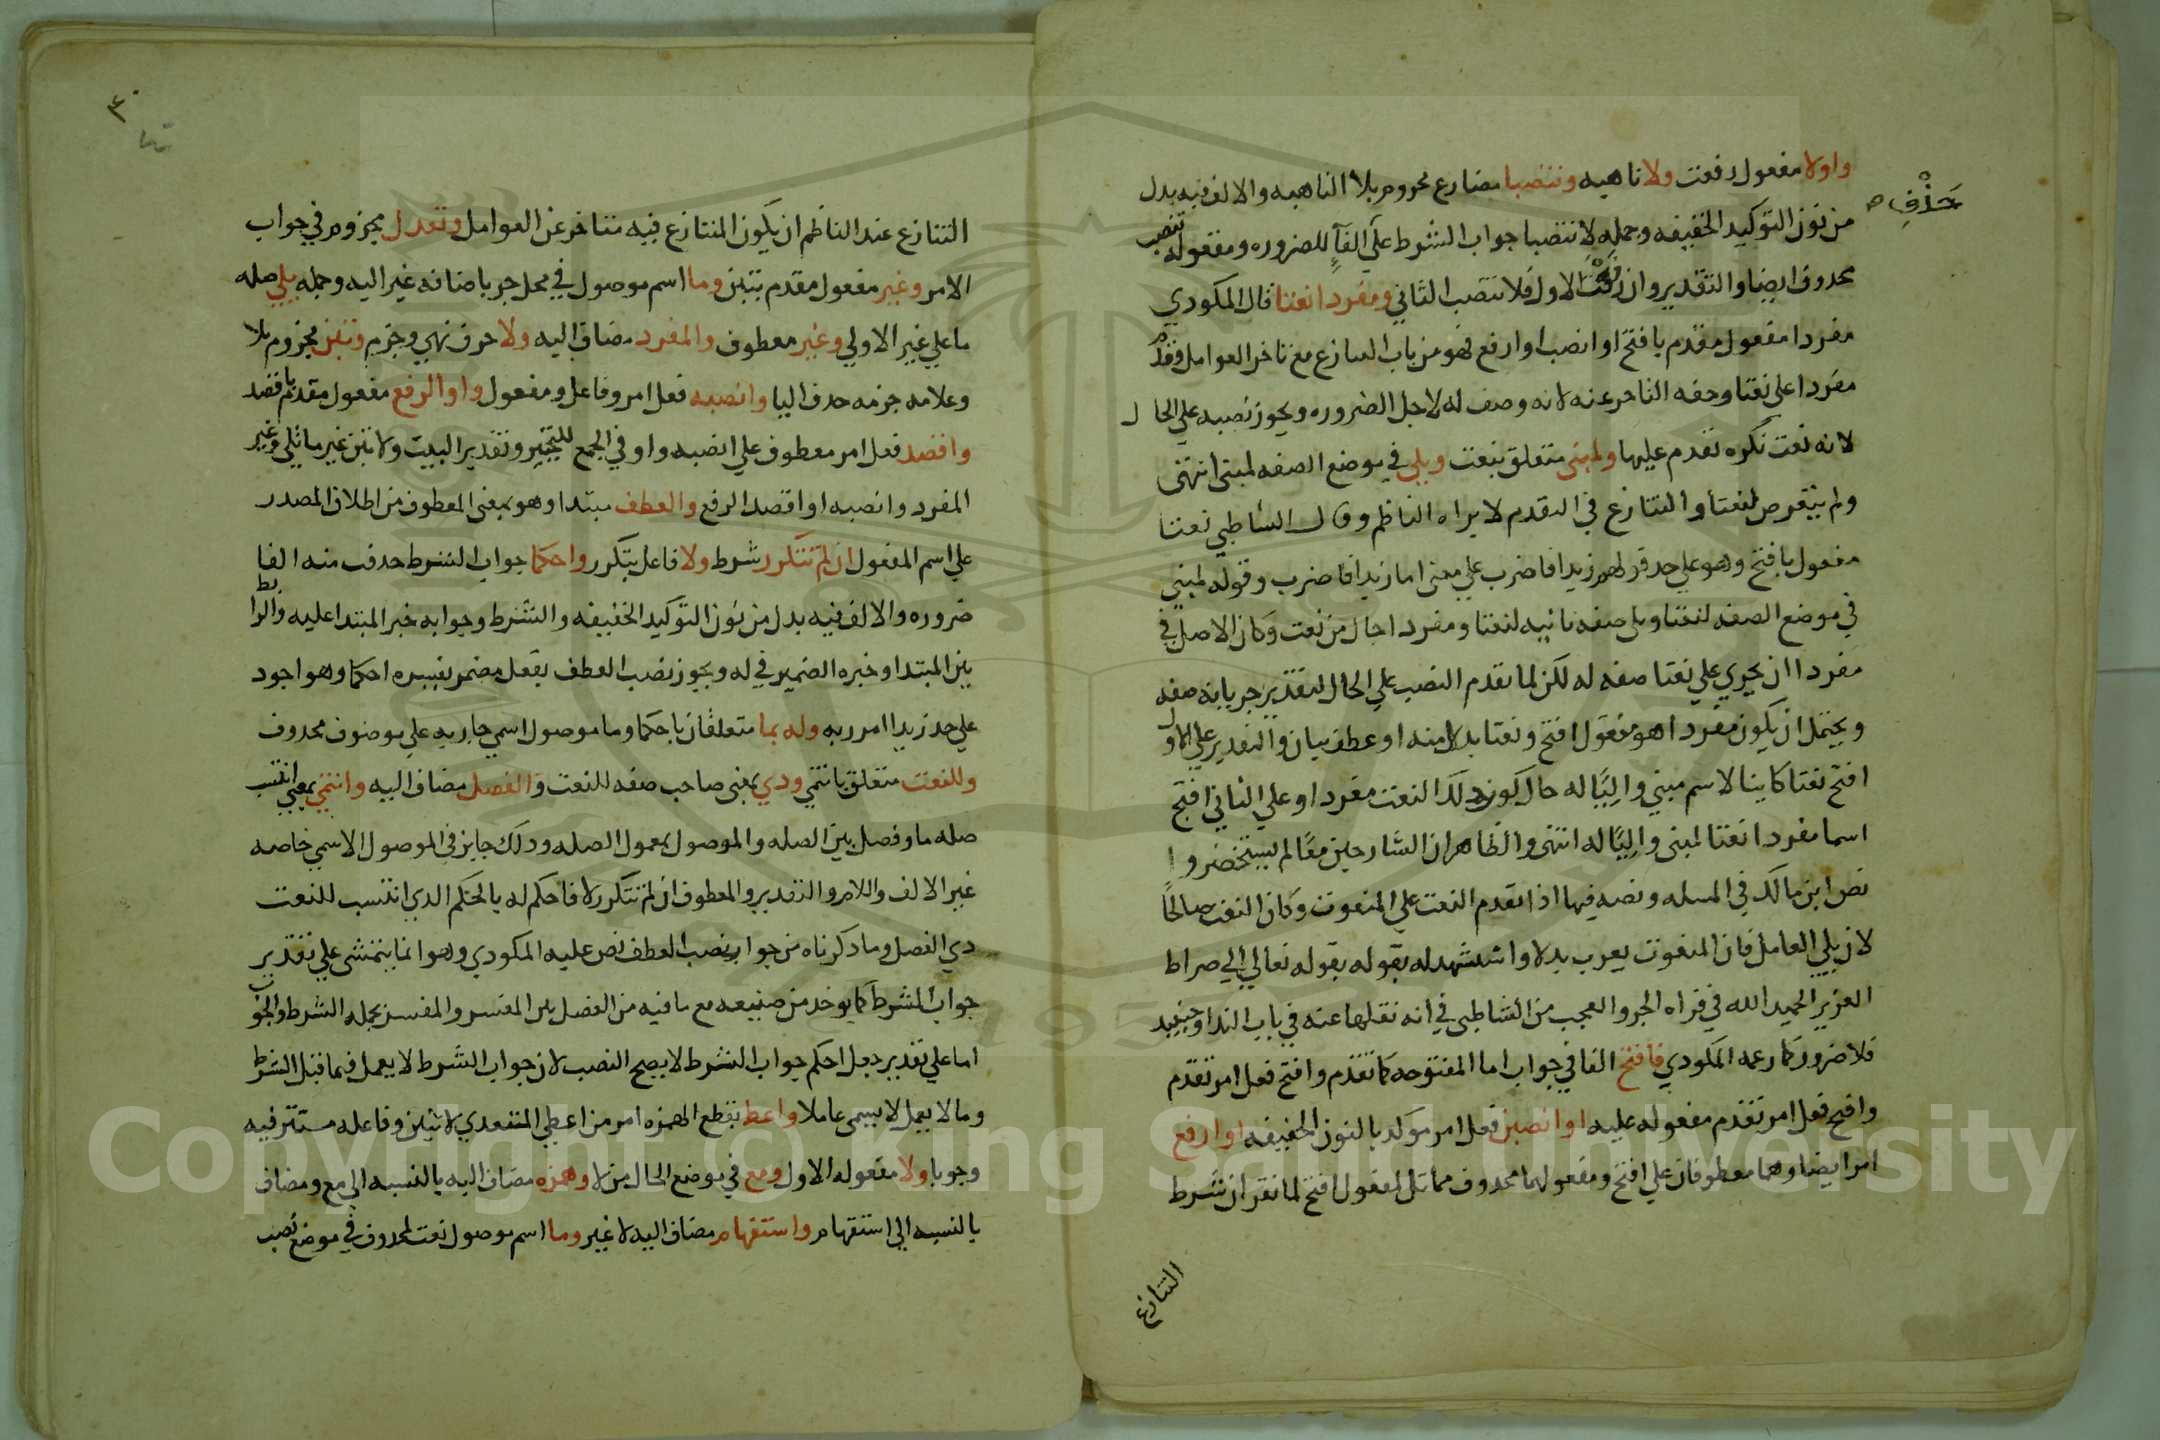 واولا مفعول رفعت ولا ناهيه وتنصبا مضارع مجزوم بلا الناهيه والالف فيه بدل
حذف
من نون التوكيد الخفيفه وجمله لا تنصبا جواب الشرط علي الفا للضروره ومفعوله تنصب
محذوف ايضا والتقدير وان رفعت الاول فلا تنصب الثاني ومفردا نعتا قال المكودي
مفردا مفعول مقدم بافتح او انصب او ارفع فهو من باب التنازع مع تاخر العوامل وقدم
مفردا علي نعتا وحقه التاخر عنه لانه وصف له لاجل الضروره ويجوز نصبه علي الحال
لانه نعت نكره تقدم عليها ولمبني متعلق بنعت ويلي في موضع الصفه لمبني انتهي
ولم يتعرض لنعتا والتنازع في التقدم لا يراه الناظم وقال الشاطبي نعتا
مفعول بافتح وهو علي حد قولهم زيدا فاضرب علي معني اما زيدا فاضرب وقوله لمبني
في موضع الصفه لنعتا ويلي صفه ثانيه لنعتا ومفردا حال من نعت وكان الاصل في
مفردا ان يجري علي نعتا صفه له لكن لما تقدم النصب علي الحال لتقدير جريانه صفه
ويحتمل ان يكون مفردا هو مفعول افتح ونعتا بدلا منه او عطف بيان والتقدير علي الاول
افتح نعتا كاينا لاسم مبني واليا له حال كون ذلك النعت مفردا وعلي الثاني افتح
اسما مفردا نعتا لمبني واليا له انتهي والظاهر ان الشارحين معا لم يستحضروا
نص ابن مالك في المسله ونصه فيها اذا تقدم النعت علي المنعوت وكان النعت صالحا
لان يلي العامل فان المنعوت يعرب بدلا واستشهد له بقوله بقوله تعالي الي صراط
العزيز الحميد الله في قراه الجر والعجب من الشاطبي في انه نقلها عنه في باب الندا وحينيد
فلا ضروره كما زعمه المكودي فافتح الفا في جواب اما المفتوحه كما تقدم وافتح فعل امر تقدم
وافتح فعل امر تقدم مفعوله عليه او انصبن فعل امر موكد بالنون الخفيفه او ارفع
امر ايضا وهما معطوفان علي افتح ومفعولهما محذوف مماثل لمفعول افتح لما تقرر ان شرط
التنازع
٣٠
التنازع عند الناظم ان يكون المتنازع فيه متاخر عن العوامل وتعدل مجزوم في جواب
الامر وغير مفعول مقدم بتبن وما اسم موصول في محل جر باضافه غير اليه وجمله يلي صله
ما علي غير الاولي وغير معطوف والمفرد مضاف اليه ولا حرف نهي وجزم وتبن مجزوم بلا
وعلامه جزمه حذف اليا وانصبه فعل امر وفاعل ومفعول واو الرفع مفعول مقدم باقصد
واقصد فعل امر معطوف علي انصبه واو في الجمع للتخيير وتقدير البيت ولا تبن غير ما يلي وغير
المفرد وانصبه او اقصد الرفع والعطف مبتدا وهو بمعني المعطوف من اطلاق المصدر
علي اسم المفعول ان لم تتكرر شرط ولا فاعل يتكرر واحكما جواب الشرط حذف منه الفا
ضروره والالف فيه بدل من نون التوكيد الخفيفه والشرط وجوابه خبر المبتدا عليه والرابط
بين المبتدا وخبره الضمير في له ويجوز نصب العطف بفعل مضمر يفسره احكما وهو اجود
علي حد زيدا امرر به وله بما متعلقان باحكما وما موصول اسمي جاريه علي موصوف محذوف
وللنعت متعلق بانتمي وذي بمعني صاحب صفه للنعت والفصل مضاف اليه وانتمي بمعني انتسب
صله ما وفصل بين الصله والموصول بمعمول الصله وذلك جايز في الموصول الاسمي خاصه
غير الالف واللام والتقدير والمعطوف ان لم تتكرر لا فاحكم له بالحكم الذي انتسب للنعت
ذي الفصل وما ذكرناه من جواز نصب العطف نص عليه المكودي وهو انما يتمشي علي تقدير
جواب الشرط كما يوخذ من صنيعه مع ما فيه من الفصل بين المفسر والمفسر بجمله الشرط والجواب
اما علي تقدير جعل احكم جواب الشرط لا يصح النصب لان جواب الشرط لا يعمل فيما قبل الشرط
وما لا يعمل لا يسمي عاملا واعط بقطع الهمزه امر من اعطي المتعدي لاثنين وفاعله مستتر فيه
وجوبا ولا مفعوله الاول ومع في موضع الحال من لا وهمزه مضاف اليه بالنسبه الي مع ومضاف
بالنسبه الي استفهام واستفهام مضاف اليه لا غير وما اسم موصول نعت لمحذوف في موضع نصب
Copyright © King Saud University